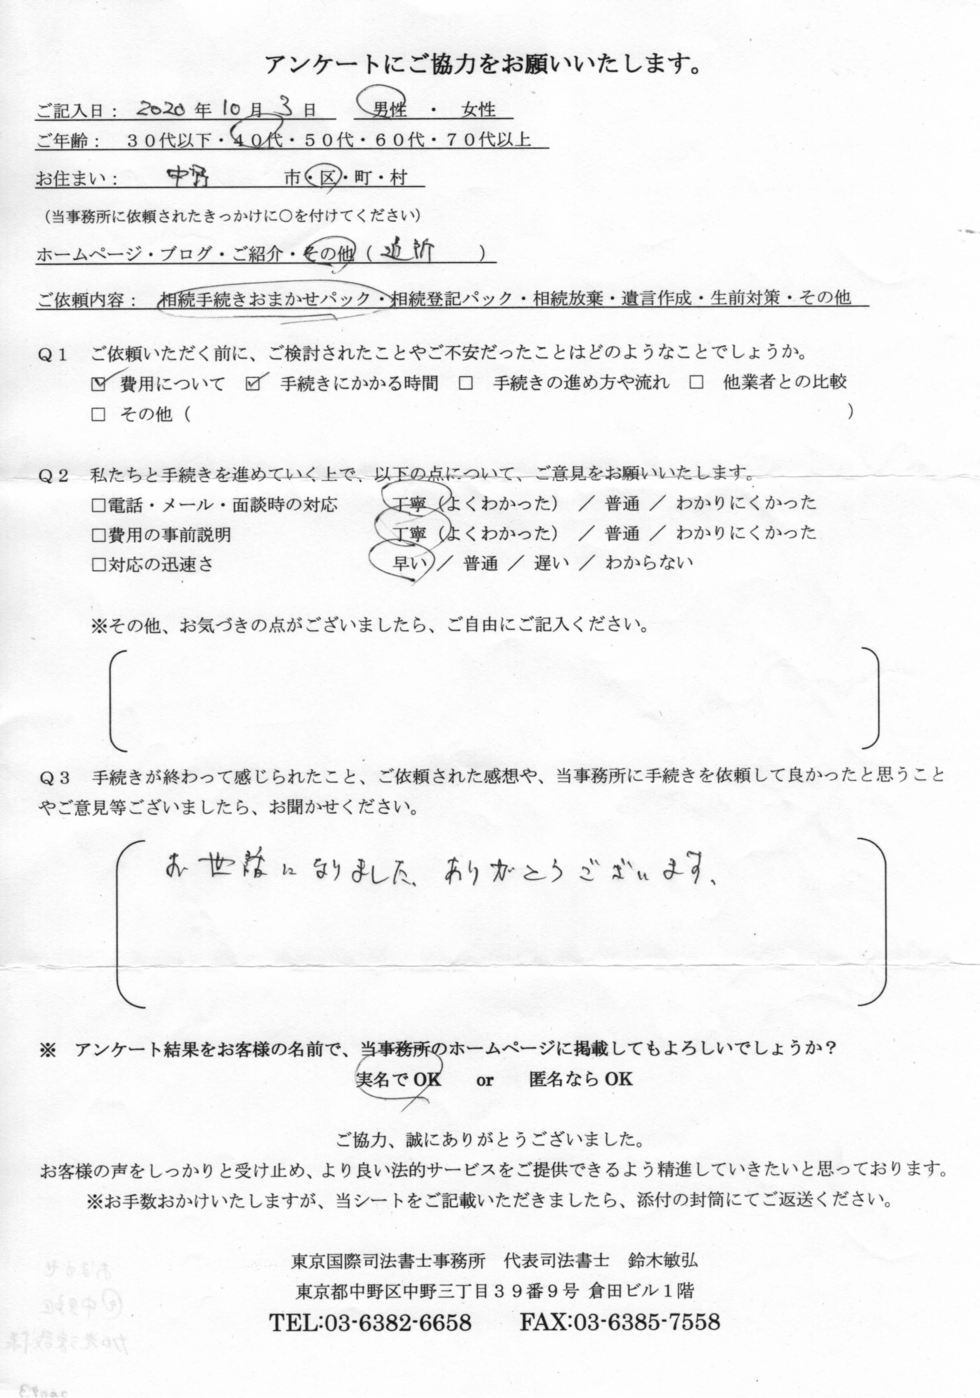 アンケートにご協力をお願いいたします。
ご記入日： 2020 年 10 月 3 日 男性 ・ 女性
ご年齢： ３０代以下・４０代・５０代・６０代・７０代以上
お住まい： 中野 市・区・町・村
（当事務所に依頼されたきっかけに○を付けてください）
ホームページ・ブログ・ご紹介・その他（ 近所 ）
ご依頼内容： 相続手続きおまかせパック・相続登記パック・相続放棄・遺言作成・生前対策・その他
Ｑ１ ご依頼いただく前に、ご検討されたことやご不安だったことはどのようなことでしょうか。
☑ 費用について ☑ 手続きにかかる時間 □ 手続きの進め方や流れ □ 他業者との比較
□ その他（ ）
Ｑ２ 私たちと手続きを進めていく上で、以下の点について、ご意見をお願いいたします。
□電話・メール・面談時の対応 丁寧（よくわかった） ／ 普通 ／ わかりにくかった
□費用の事前説明 丁寧（よくわかった） ／ 普通 ／ わかりにくかった
□対応の迅速さ 早い ／ 普通 ／ 遅い ／ わからない
※その他、お気づきの点がございましたら、ご自由にご記入ください。
Ｑ３ 手続きが終わって感じられたこと、ご依頼された感想や、当事務所に手続きを依頼して良かったと思うこと
やご意見等ございましたら、お聞かせください。
お世話になりました、ありがとうございます、
※ アンケート結果をお客様の名前で、当事務所のホームページに掲載してもよろしいでしょうか？
実名で OK or 匿名なら OK
ご協力、誠にありがとうございました。
お客様の声をしっかりと受け止め、より良い法的サービスをご提供できるよう精進していきたいと思っております。
※お手数おかけいたしますが、当シートをご記載いただきましたら、添付の封筒にてご返送ください。
東京国際司法書士事務所 代表司法書士 鈴木敏弘
東京都中野区中野三丁目３９番９号 倉田ビル１階
TEL:03-6382-6658 FAX:03-6385-7558